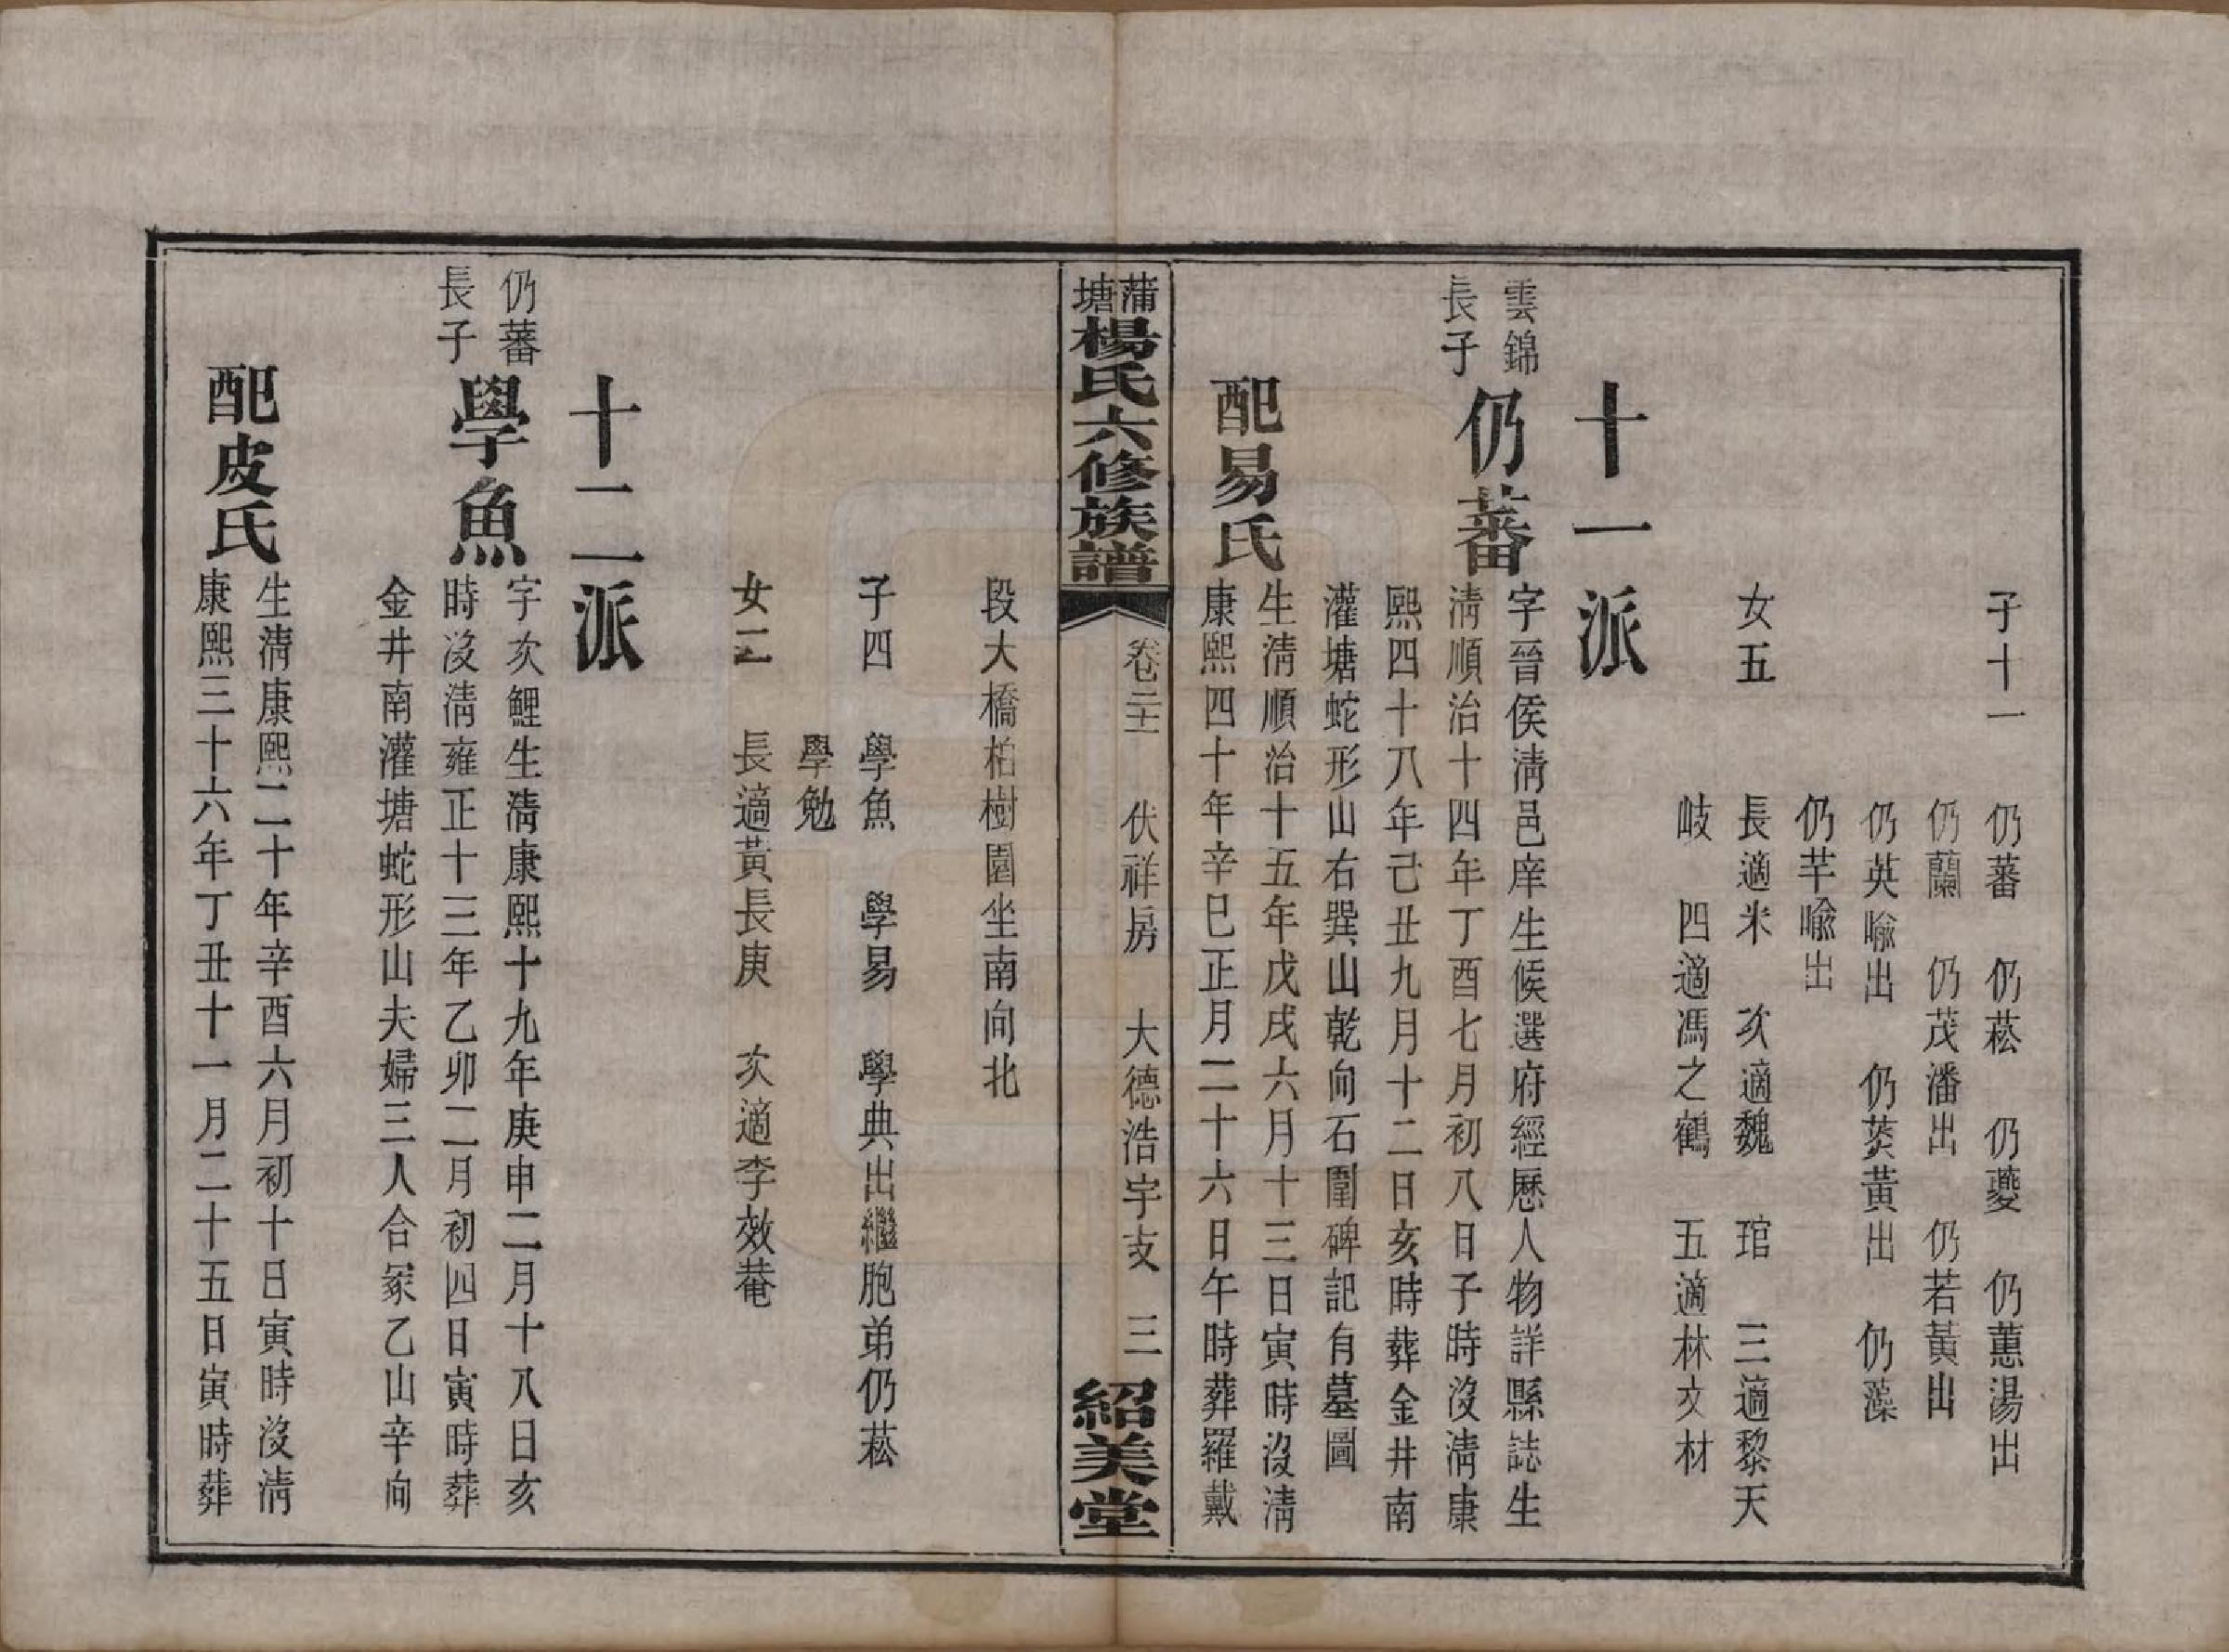 子十一　仍蕃　仍菘　仍虁　仍蕙湯出
仍蘭　仍茂潘出　仍若黃出
仍英喻出　仍葵黃出　仍藻
仍芊喻出
女五　長適米　次適魏　琯　三適黎天
岐　四適馮之鶴　五適林文材
十一派
雲錦長子
仍蕃
字晉侯淸邑庠生候選府經歷人物詳縣誌生
淸順治十四年丁酉七月初八日子時沒淸康
熙四十八年己丑九月十二日亥時葬金井南
灌塘蛇形山右巽山乾向石圍碑記有墓圖
配易氏
生淸順治十五年戊戌六月十三日寅時沒淸
康熙四十年辛巳正月二十六日午時葬羅戴
蒲塘楊氏六修族譜　卷二十二　伏祥房　大德浩宇支　三　紹美堂
段大橋柏樹園坐南向北
子四　學魚　學易　學典出繼胞弟仍菘
學勉
女二　長適黃長庚　次適李效菴
十二派
仍蕃長子
學魚
字次鯉生淸康熙十九年庚申二月十八日亥
時沒淸雍正十三年乙卯二月初四日寅時葬
金井南灌塘蛇形山夫婦三人合冢乙山辛向
配皮氏
生淸康熙二十年辛酉六月初十日寅時沒淸
康熙三十六年丁丑十一月二十五日寅時葬